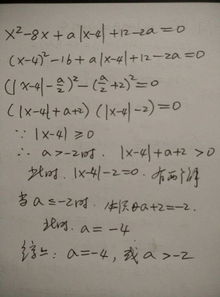 x²-8x+a|x-4|+12-2a=0
(x-4)²-16+a|x-4|+12-2a=0
(|x-4|-a/2)²-(a/2+2)²=0
(|x-4|+a+2)(|x-4|-2)=0
∵ |x-4|≥0
∴ a>-2时. |x-4|+a+2>0
此时. |x-4|-2=0. 有两个解
当 a≤-2时. a+2=-2.
此时. a=-4
综上: a=-4, 或 a>-2